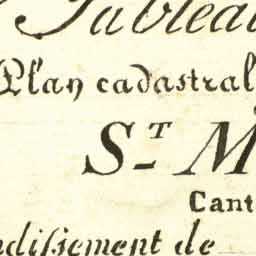 Tablea
Plan cadastral
S.T M
Cant
ndissement de